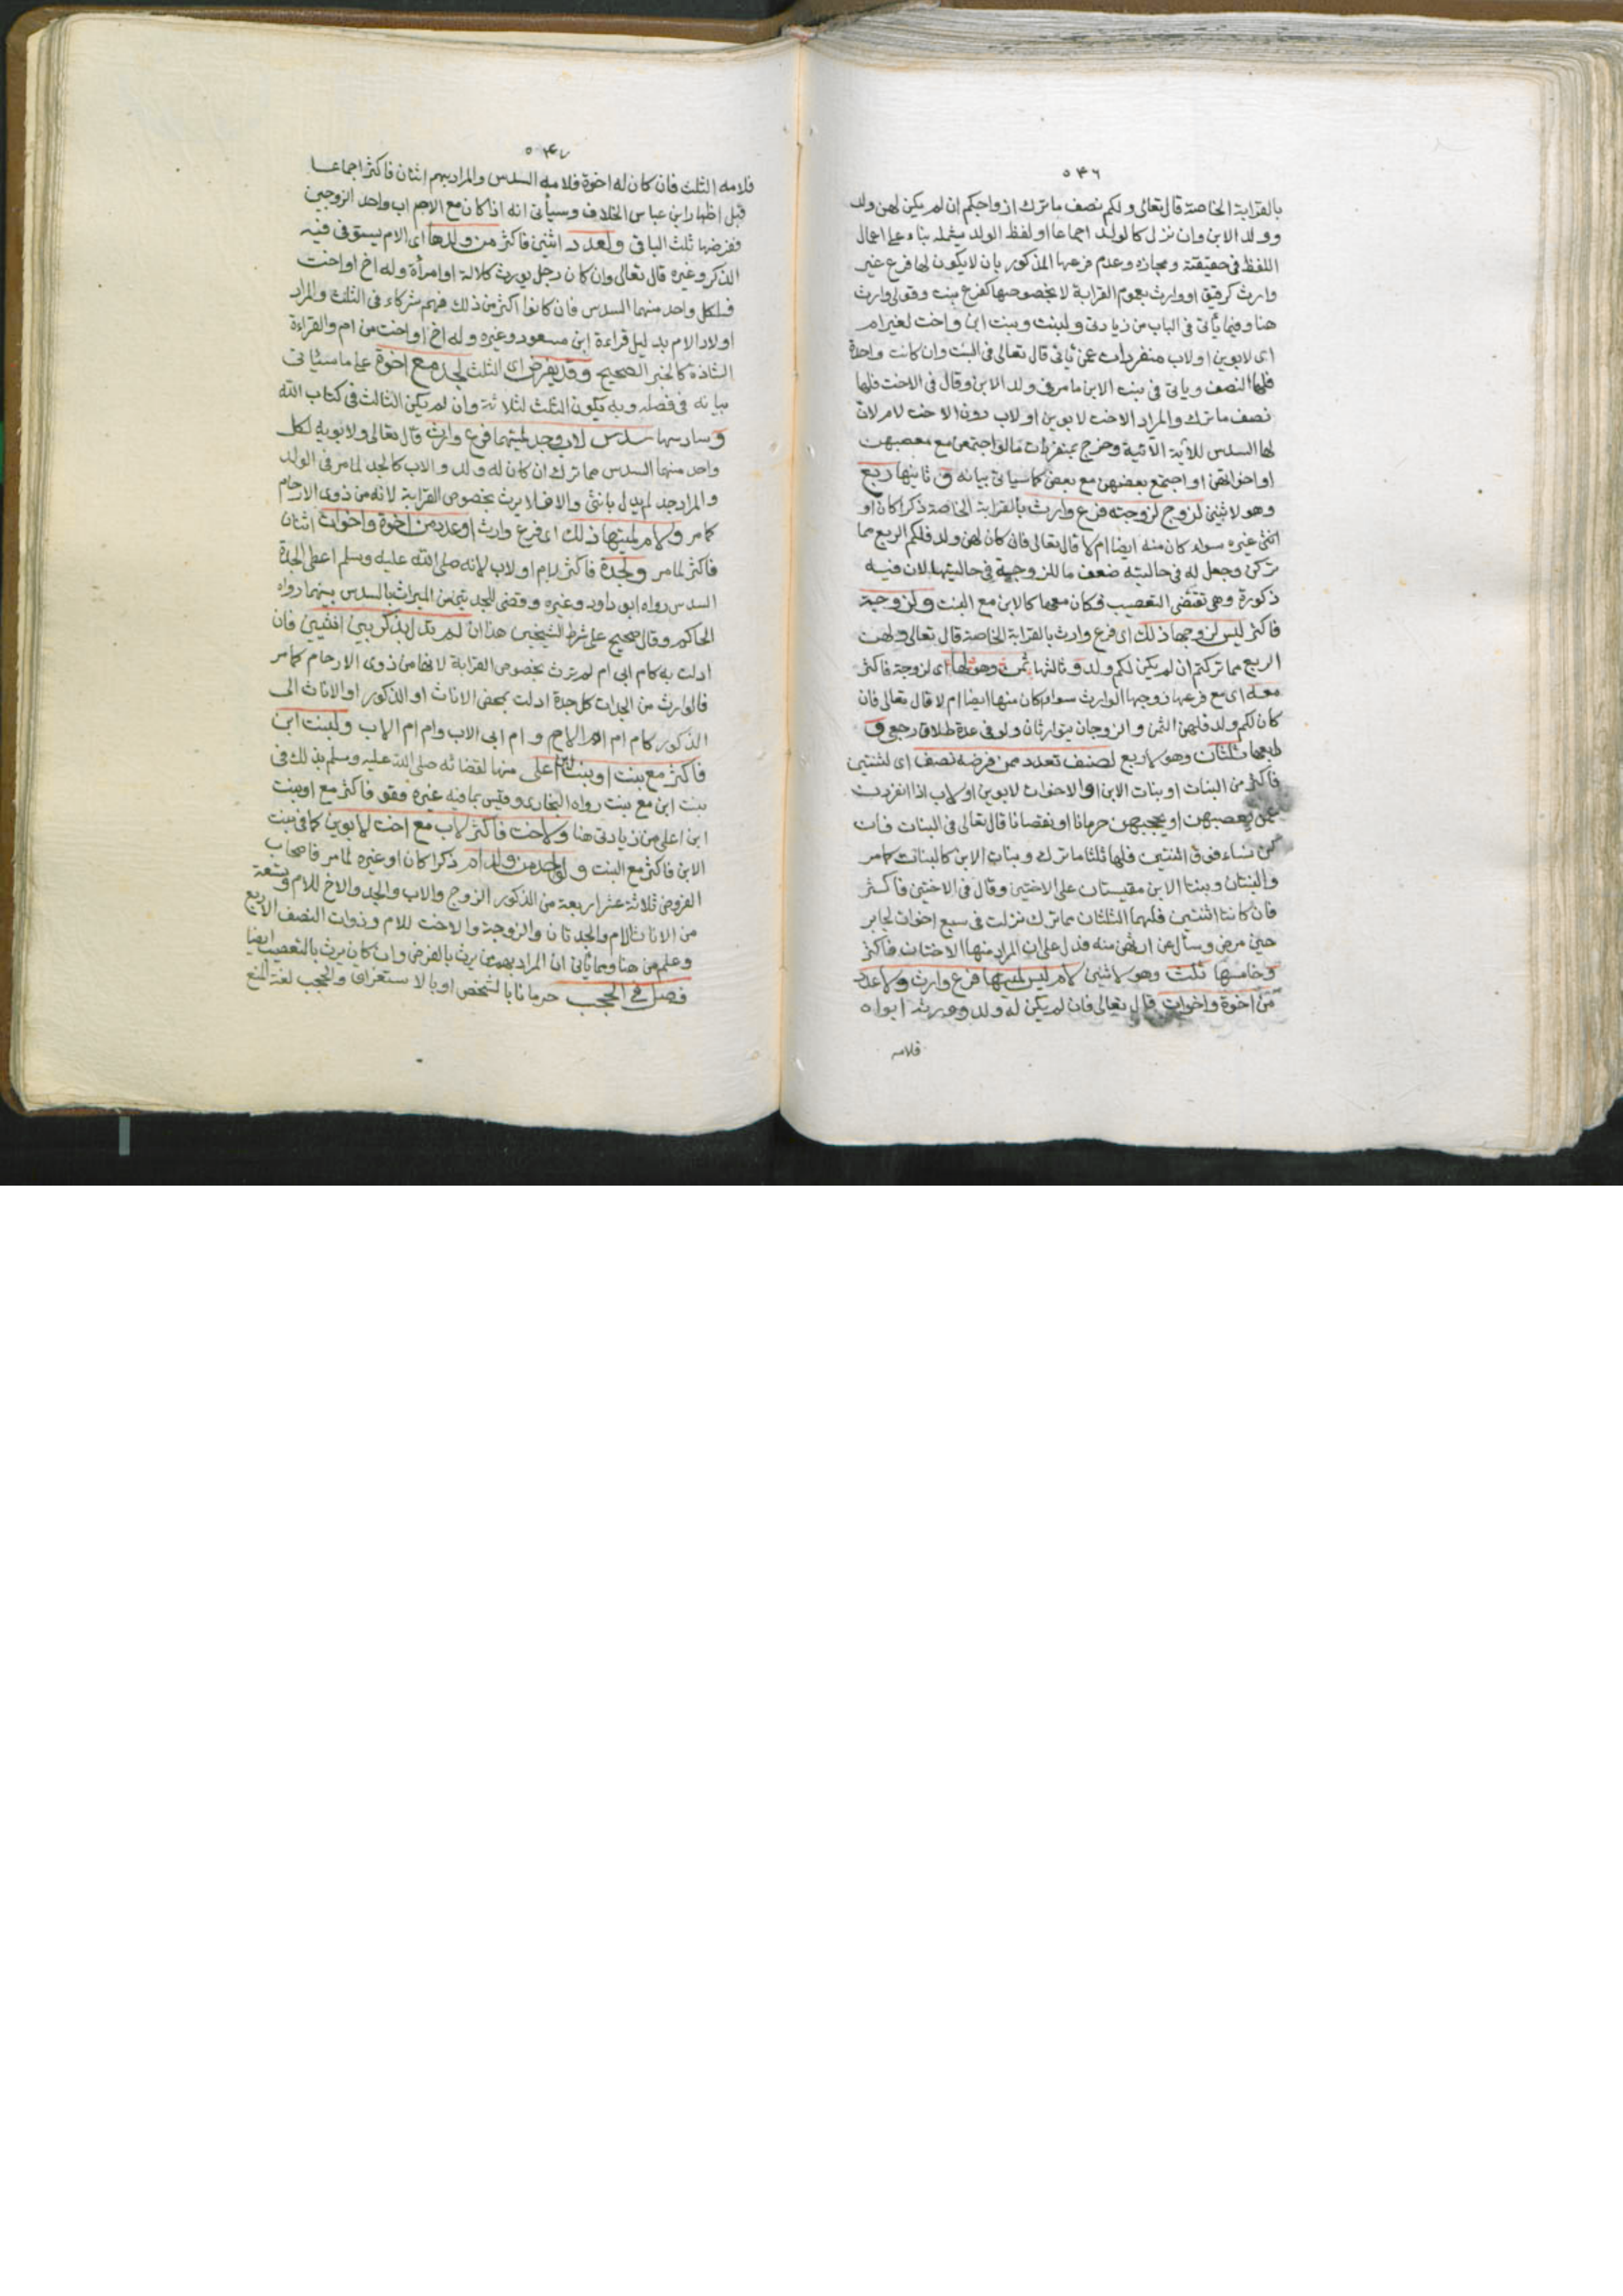 ٥٤٦
بالقرابة الخاصة قال تعالى ولكم نصف ما ترك ازواجكم ان لم يكن لهن ولد
وولد الابن وان نزل كالولد اجماعا او لفظ الولد يشمله بناء على اعمال
اللفظ في حقيقته ومجازه وعدم فرعها المذكور بان لا يكون لها فرع غير
وارث كرقيق او وارث بعموم القرابة لا بخصوصها كفرع بنت وقولي وارث
هنا وفيما يأتي في الباب من زيادتي ولبنت وبنت ابن واخت لغير ام
اى لابوين او لاب منفردات عمن يأتي قال تعالى في البنت وان كانت واحدة
فلها النصف وياتى في بنت الابن ما مر في ولد الابن وقال في الاخت فلها
نصف ما ترك والمراد الاخت لابوين او لاب دون الاخت لام لان
لها السدس للآية الآتية وخرج بمنفردات ما لو اجتمعن مع معصبهن
او اخواتهن او اجتمع بعضهن مع بعض كما سياتى بيانه و ثانيها ربع
وهو لاثنين لزوج لزوجته فرع وارث بالقرابة الخاصة ذكرا كان او
انثى غيره سواء كان منه ايضا ام لا قال تعالى فان كان لهن ولد فلكم الربع مما
تركن وجعل له في حالتيه ضعف ما للزوجة في حالتيها لان فيه
ذكورة وهي تقتضى التعصيب فكان معها كالابن مع البنت ولزوجة
فاكثر ليس لزوجها ذلك اى فرع وارث بالقرابة الخاصة قال تعالى ولهن
الربع مما تركتم ان لم يكن لكم ولد و ثالثها ثمن وهو لها اى لزوجة فاكثر
معه اى مع فرع زوجها الوارث سواء كان منها ايضا ام لا قال تعالى فان
كان لكم ولد فلهن الثمن والزوجان يتوارثان ولو في عدة طلاق رجعى و
رابعها ثلثان وهو لاربع لصنف تعدد ممن فرضه نصف اى لثنتين
فاكثر من البنات او بنات الابن او الاخوات لابوين او لاب اذا انفردن
عمن يعصبهن او يحجبهن حرمانا او نقصانا قال تعالى في البنات فان
كن نساء فوق اثنتين فلهن ثلثا ما ترك وبنات الابن كالبنات كما مر
والبنتان وبنتا الابن مقيستان على الاختين وقال في الاختين فاكثر
فان كانتا اثنتين فلهما الثلثان مما ترك نزلت في سبع اخوات لجابر
حين مرض وسأل عن ارثهن منه فدل على ان المراد منها الاختان فاكثر
وخامسها ثلث وهو لاثنين لام ليس لميتها فرع وارث ولا عدد
من اخوة واخوات قال تعالى فان لم يكن له ولد وورثه ابواه
فلامه
٥٤٧
فلامه الثلث فان كان له اخوة فلامه السدس والمراد بهم اثنان فاكثر اجماعا
قبل اظهار ابن عباس الخلاف وسيأتى انه اذا كان مع الام اب واحد الزوجين
ففرضها ثلث الباقى ولعدد اثنين فاكثر من ولدها اى الام يستوى فيه
الذكر وغيره قال تعالى وان كان رجل يورث كلالة او امرأة وله اخ او اخت
فلكل واحد منهما السدس فان كانوا اكثر من ذلك فهم شركاء في الثلث والمراد
اولاد الام بدليل قراءة ابن مسعود وغيره وله اخ او اخت من ام والقراءة
الشاذة كالخبر الصحيح وقد يفرض اى الثلث لجد مع اخوة على ما سيأتى
بيانه في فصله وبه يكون الثلث لثلاثة وان لم يكن الثالث في كتاب الله
وسادسها سدس لاب وجد لميتهما فرع وارث قال تعالى ولابويه لكل
واحد منهما السدس مما ترك ان كان له ولد والاب كالجد لما مر في الولد
والمراد جد لم يدل بانثى والا فلا يرث بخصوص القرابة لانه من ذوى الارحام
كما مر ولام لميتها ذلك اى فرع وارث او عدد من اخوة واخوات اثنان
فاكثر لما مر ولجدة فاكثر لام او لاب لانه صلى الله عليه وسلم اعطى الجدة
السدس رواه ابو داود وغيره وقضى للجدتين من الميراث بالسدس بينهما رواه
الحاكم وقال صحيح على شرط الشيخين هذا ان لم تدل بذكر بين انثيين فان
ادلت به كام ابى ام لم ترث بخصوص القرابة لانها من ذوى الارحام كما مر
فالوارث من الجدات كل جدة ادلت بمحض الاناث او الذكور او الاناث الى
الذكور كام ام الام وام ابى الاب وام ام الاب ولبنت ابن
فاكثر مع بنت او بنت ابن اعلى منها لقضائه صلى الله عليه وسلم بذلك في
بنت ابن مع بنت رواه البخارى وقيس بما فيه غيره وقولى فاكثر مع او بنت
ابن اعلى من زيادتى هنا ولاخت فاكثر لاب مع اخت لابوين كما في بنت
الابن فاكثر مع البنت و لواحد من ولد ام ذكرا كان او غيره لما مر فاصحاب
الفروض ثلاثة عشر اربعة من الذكور الزوج والاب والجد والاخ للام وتسعة
من الاناث الام والجدتان والزوجة والاخت للام وذوات النصف الاربع
وعلم من هنا ومما يأتى ان المراد بهم من يرث بالفرض وان كان يرث بالتعصيب ايضا
فصل في الحجب حرمانا بالشخص او بالاستغراق والحجب لغة المنع